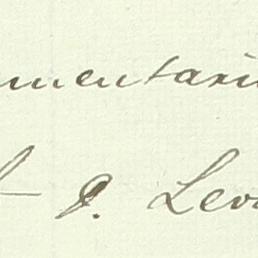 mentari
J. Lev